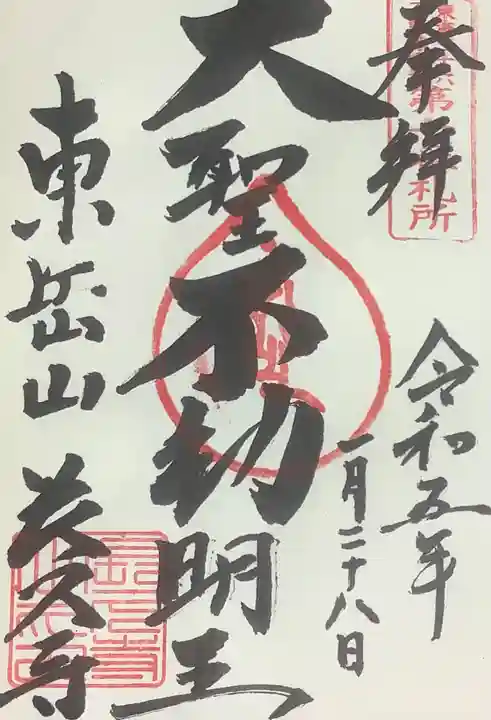 奉拝
令和五年
一月二十八日
大聖不動明王
東岳山 長久寺
札所